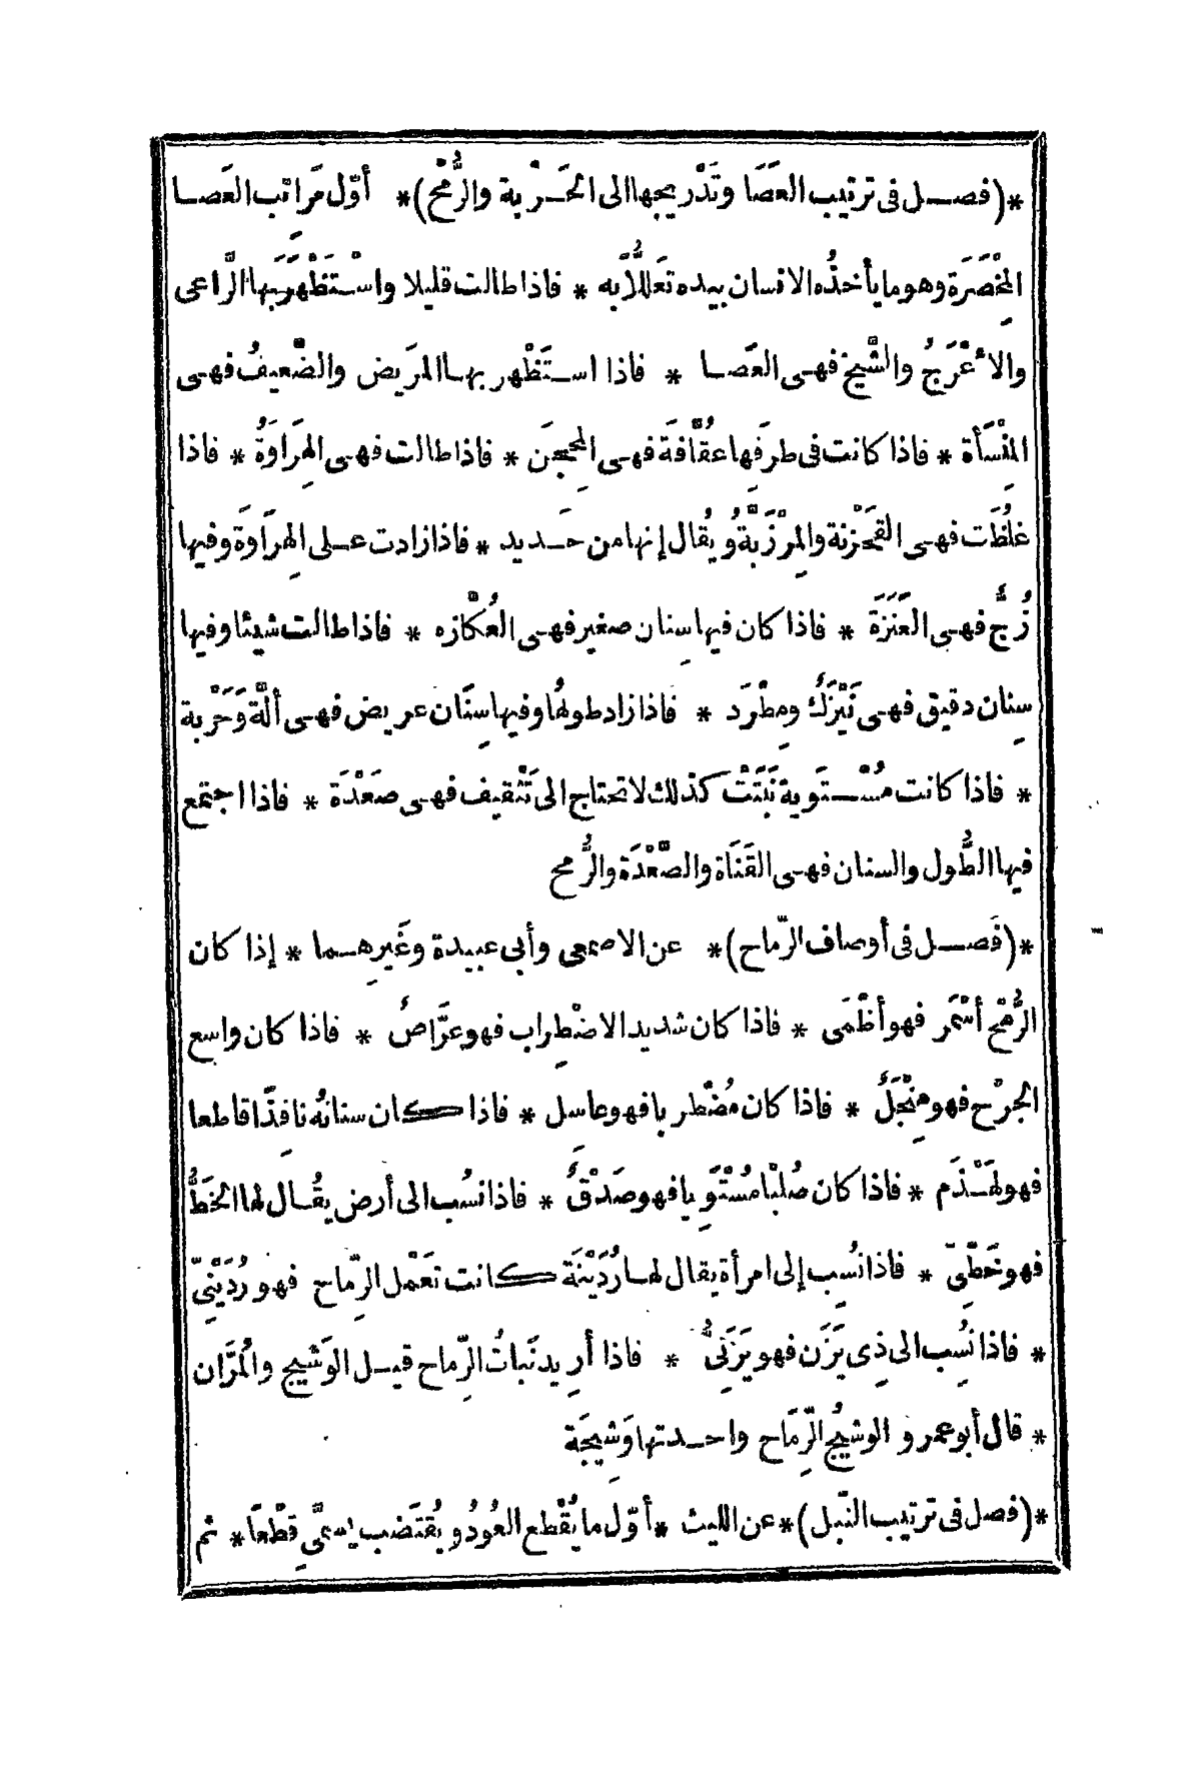 *(فصل فى ترتيب العَصَا وتَدْريجها الى الحَرْبة والرُّمْح)* أوّل مَراتِب العَصا
المِخْصَرَة وهو ما يأخذُه الانسان بيده تَعَلُّلًا به * فاذا طالت قليلا واسْتَظْهَرَ بها الرَّاعى
والاَعْرَجُ والشَّيخ فهى العَصا * فاذا استَظْهر بها المَريض والضَّعيفُ فهى
المِنْسَأة * فاذا كانت فى طرَفِها عُقَّافَة فهى المِحْجَن * فاذا طالت فهى الهِرَاوَةُ * فاذا
غلُظَت فهى القَحْزَنة والمِرْزَبَّةُ ويُقال إنها من حَديد * فاذا زادت على الهِرَاوَة وفيها
زُجٌّ فهى العَنَزَة * فاذا كان فيها سِنان صغير فهى العُكَّازه * فاذا طالت شيئا وفيها
سِنان دقيق فهى نَيْزَكٌ ومِطْرَد * فاذا زاد طولُها وفيها سِنَان عريض فهى ألَّة وَحَرْبة
* فاذا كانت مُسْتَوية نَبَتَتْ كذلك لا تحتاج الى تَثْقيف فهى صَعْدَة * فاذا اجتمع
فيها الطُّول والسنان فهى القَنَاة والصَّعْدَة والرُّمح
*(فَصل فى أوصاف الرّماح)* عن الاصمعى وأبى عبيدة وغَيرِهما * إذا كان
الرُّمْح أسْمَر فهو أظْمَى * فاذا كان شديد الاضْطِراب فهو عرَّاصٌ * فاذا كان واسع
الجُرْح فهو مِنْجَلٌ * فاذا كان مُضْطَرِبا فهو عاسل * فاذا كان سنانُه نافِذًا قاطعا
فهو لَهْذَم * فاذا كان صُلْبًا مُسْتَوِيا فهو صَدْقٌ * فاذا نسُب الى أرض يقُال لها الخَطُّ
فهو خَطِّىّ * فاذا نُسِب إلى امرأة يقال لها رُدَيْنَة كانت تَعْمَل الرِّماح فهو رُدَيْنِىّ
* فاذا نُسِب الى ذِى يَزَن فهو يَزَنِىٌّ * فاذا أرِيد نَباتُ الرِّماح قيل الوَشِيج والمُرَّان
* قال أبو عمرو الوشِيجُ الرِّمَاح واحدتها وَشِيجَة
*(فصل فى ترتيب النَّبل)* عن الليث * أوّل ما يُقْطع العُودُ ويُقتَضَب يسمَّى قِطْعًا * ثم